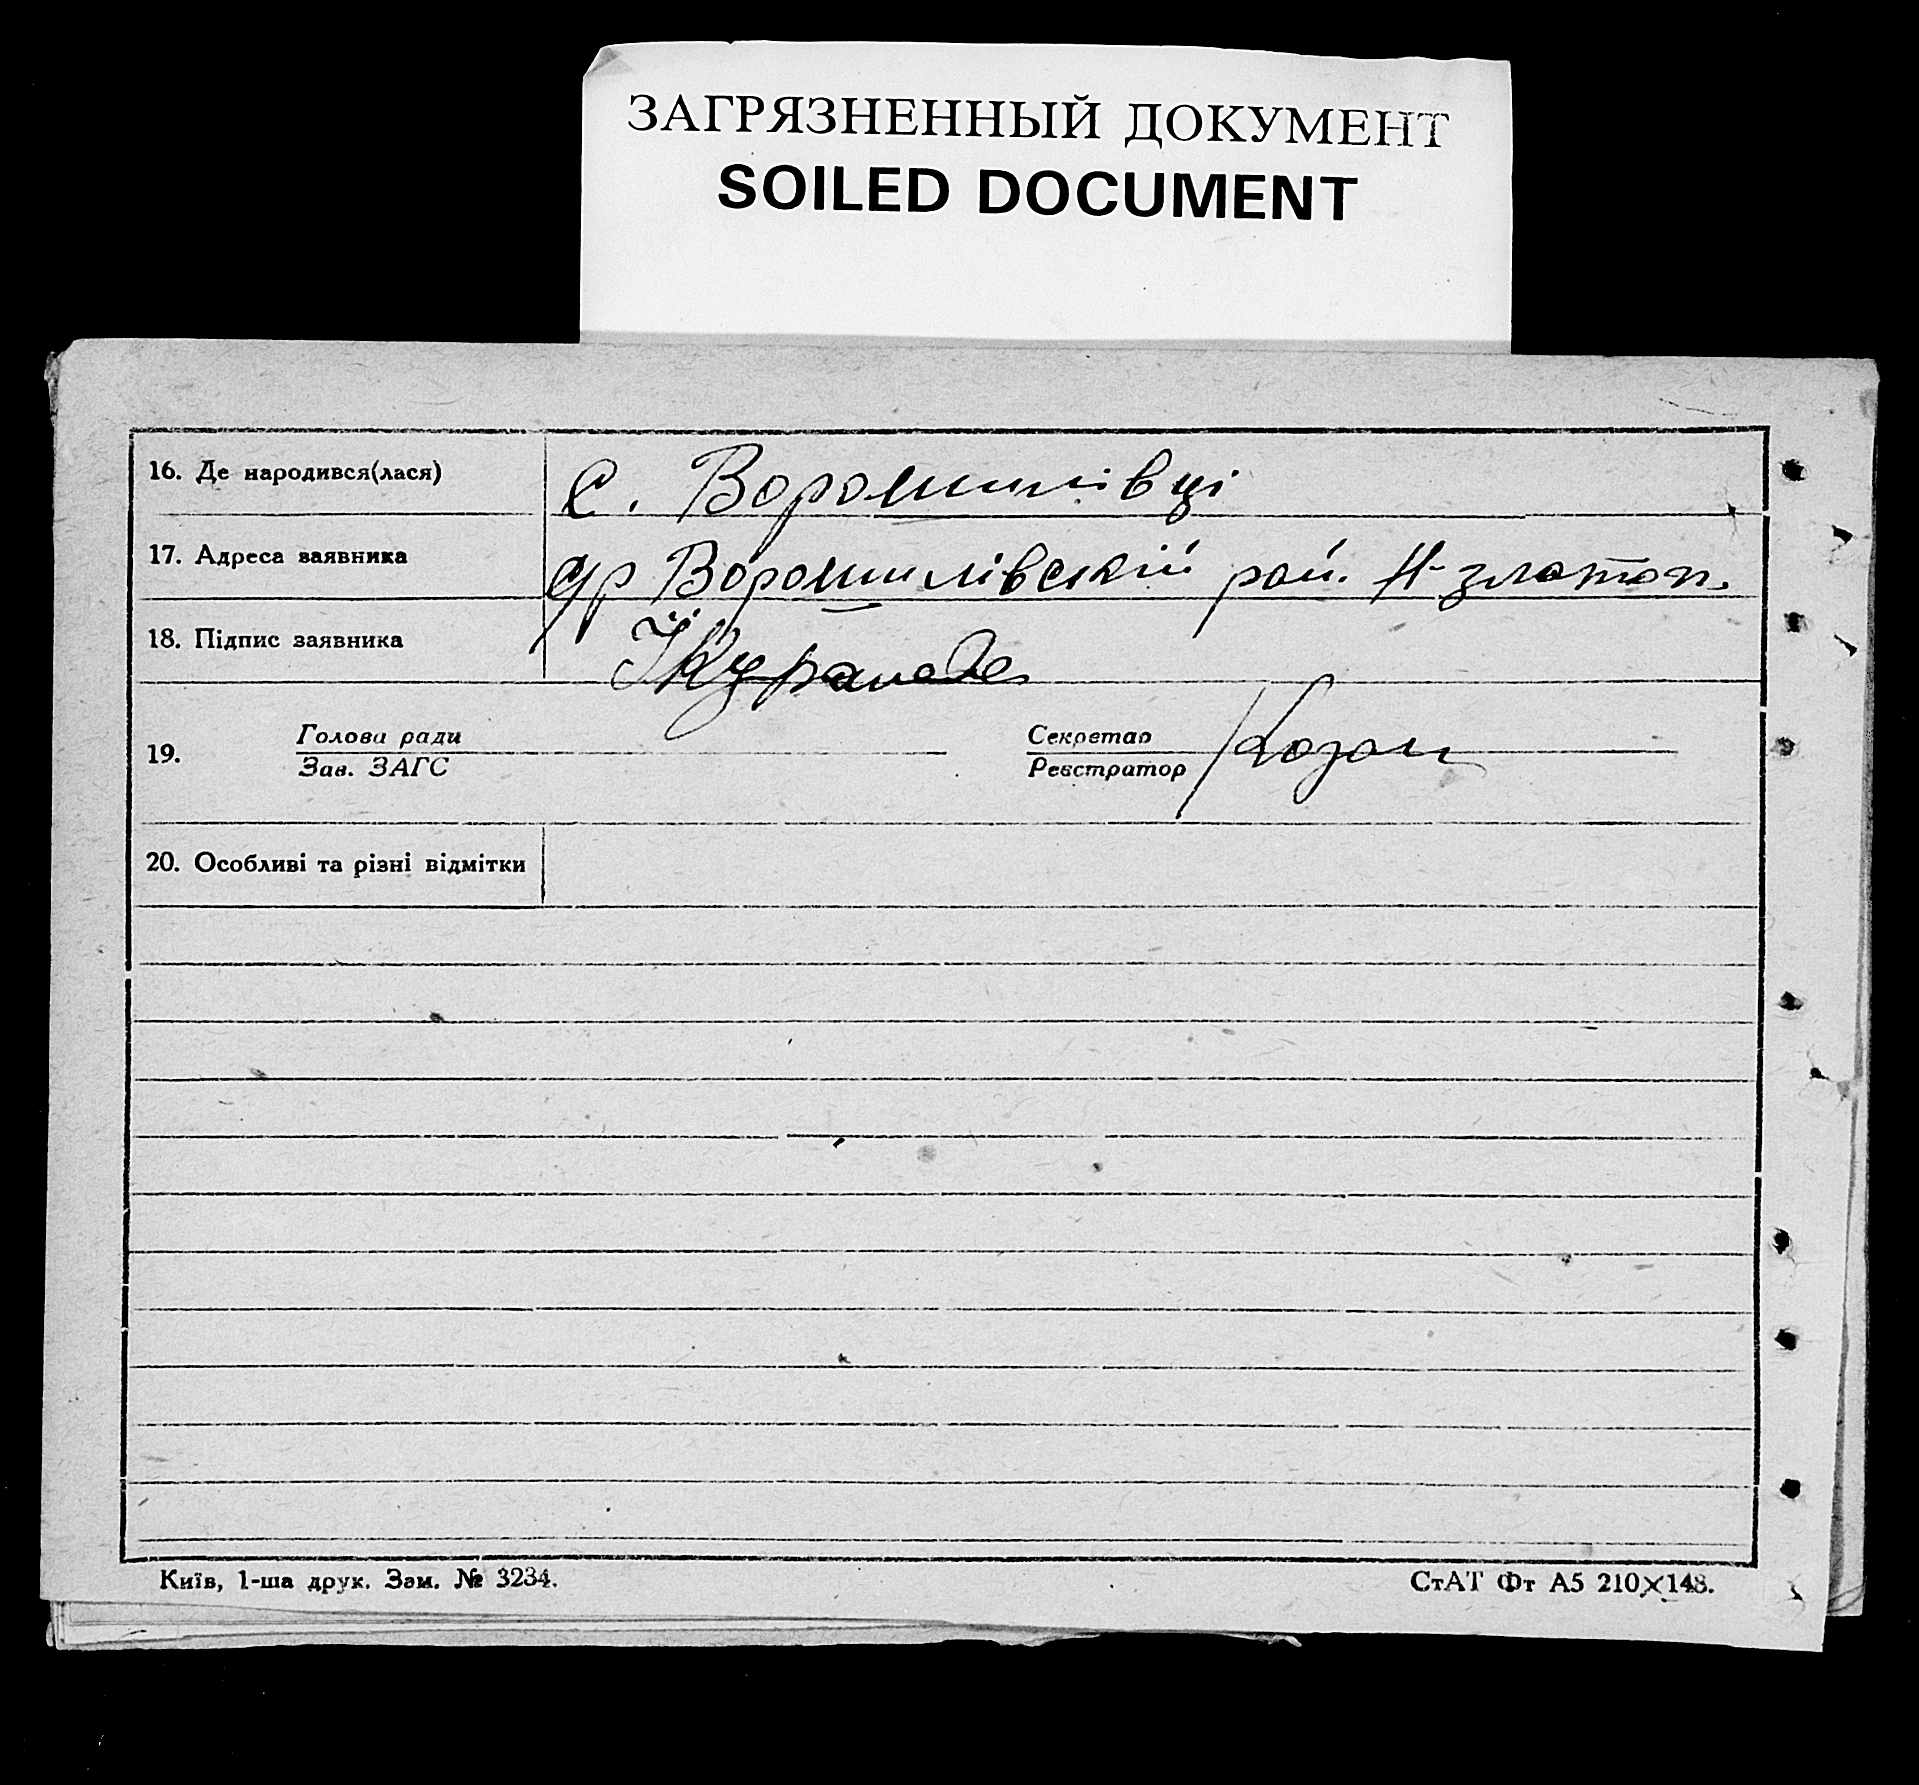 ЗАГРЯЗНЕННЫЙ ДОКУМЕНТ
SOILED DOCUMENT
16. Де народився(лася) с. Ворошилівці
17. Адреса заявника с/р Ворошилівскій рай. Н-златоп.
18. Підпис заявника
Голова ради Секретар
19.
Зав. ЗАГС Реєстратор
20. Особливі та різні відмітки
Київ, 1-ша друк. Зам. № 3234. СтАТ Фт А5 210×148.